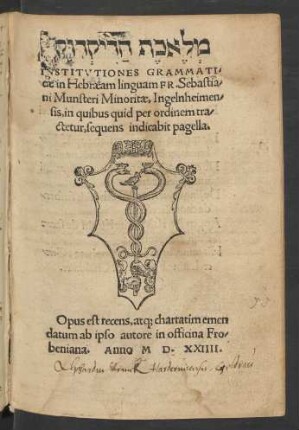 מלאכת הדיקדוק
INSTITVTIONES GRAMMATI
cæ in Hebræam linguam FR. Sebastia-
ni Munsteri Minoritæ, Ingelnheimen-
sis, in quibus quid per ordinem tra-
ctetur, sequens indicabit pagella.
Opus est recens, atq; chartatim emen
datum ab ipso autore in officina Fro-
beniana. ANNO M D. XXIIII.